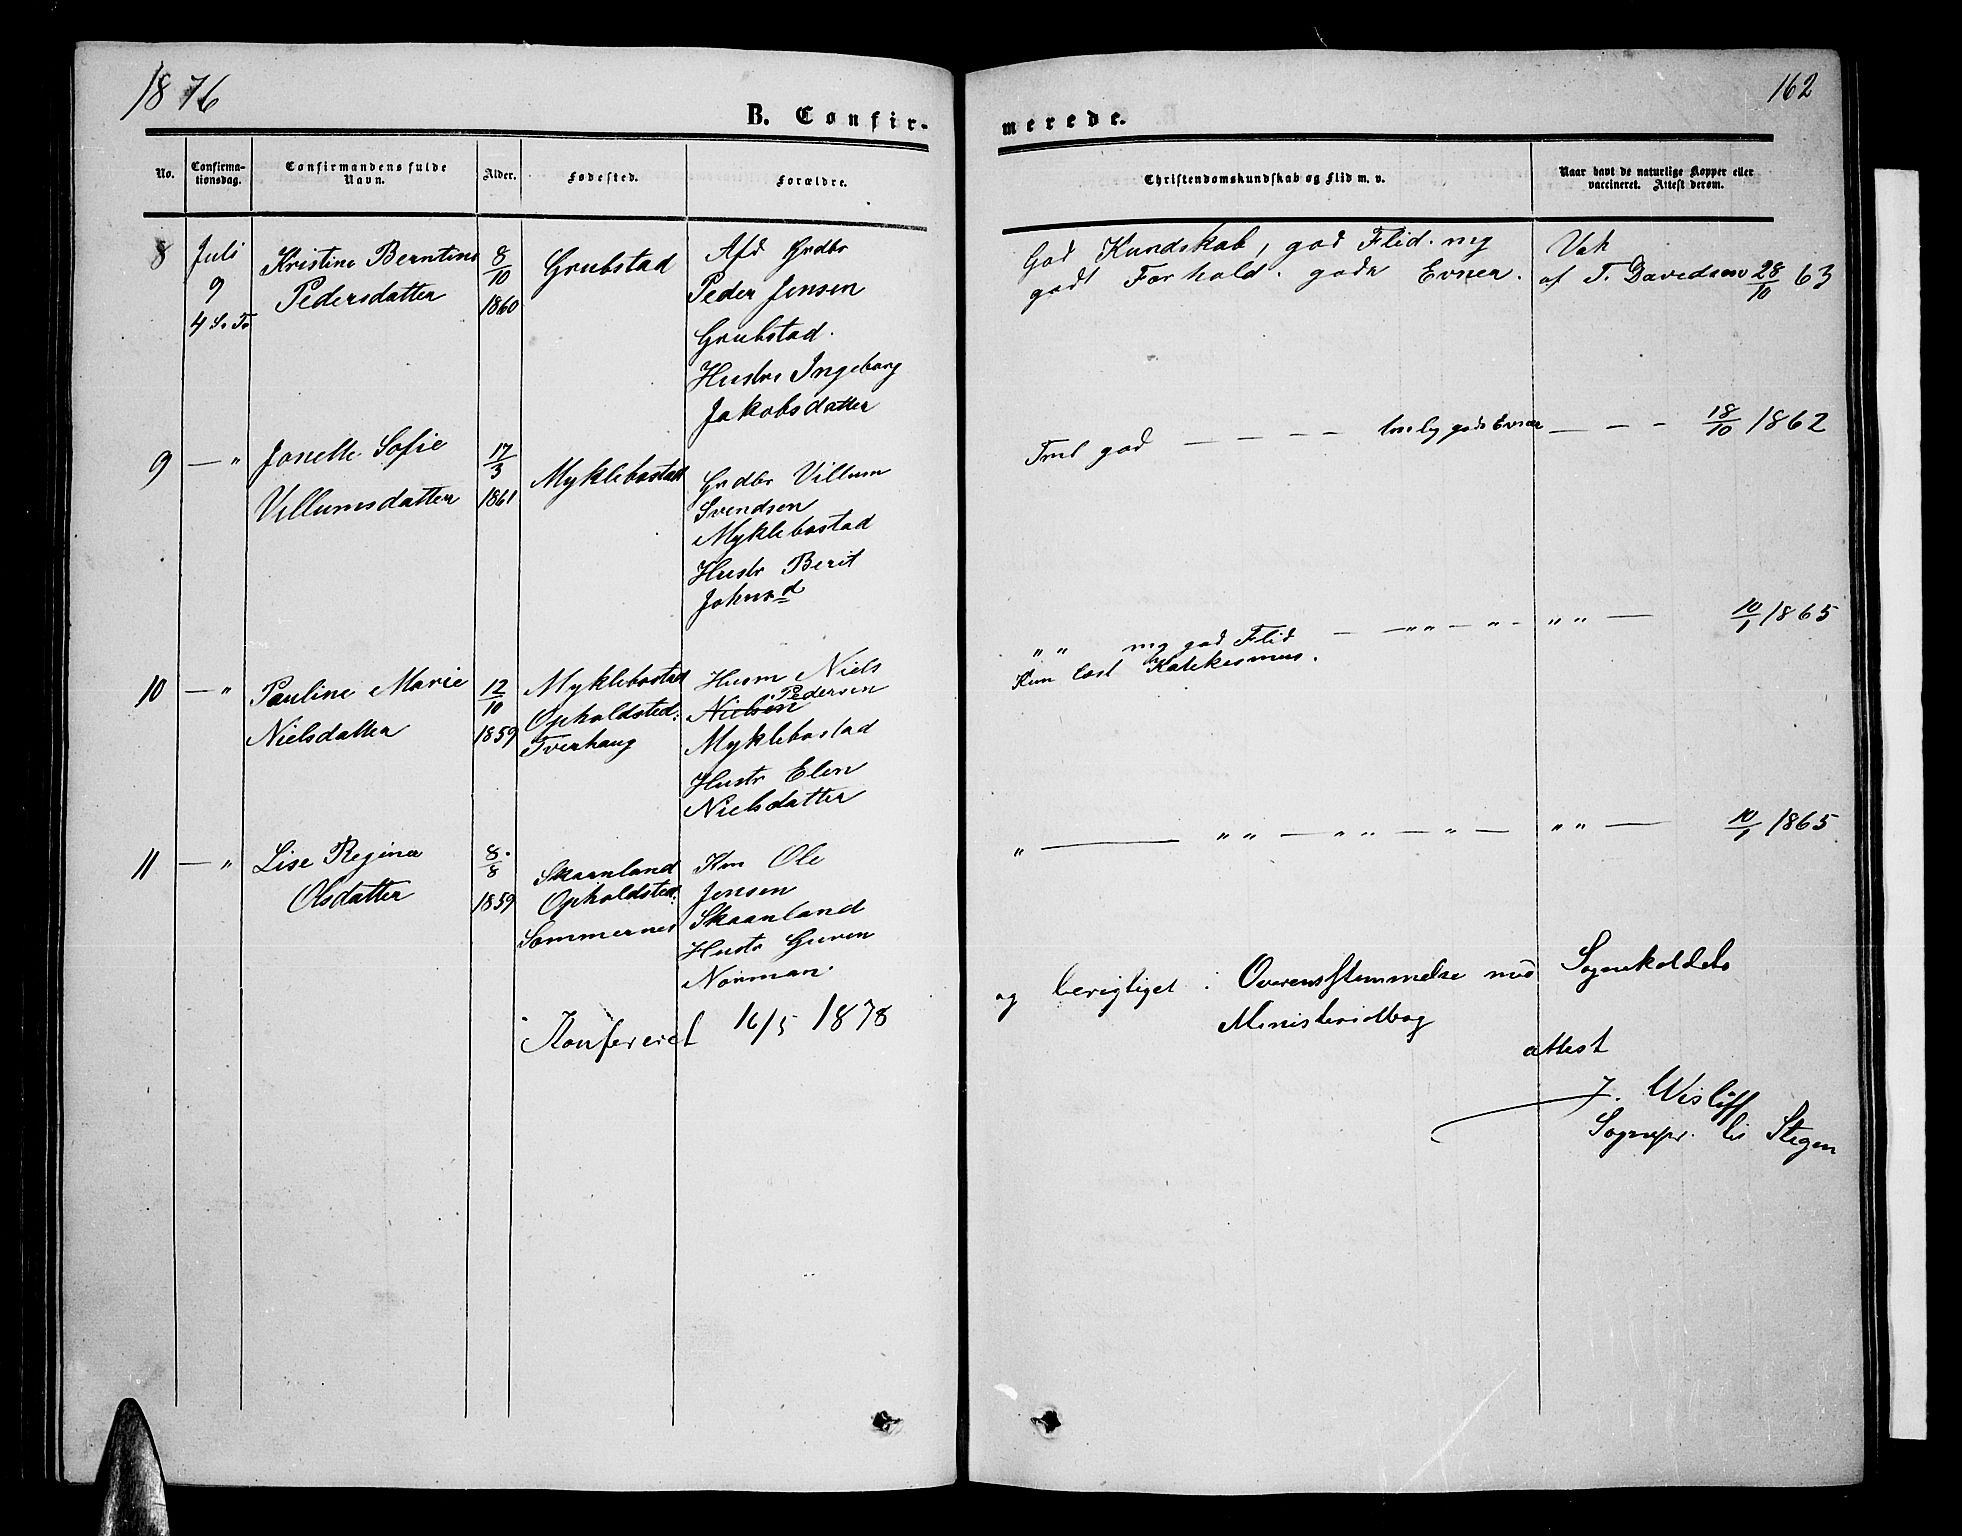 1876
162
B. Confir-
merede.
No.
Confirma-
tionsdag.
Confirmandens fulde
Navn.
Alder.
Fødested.
Forældre.
Christendomskundskab og Flid m. v.
Naar havt de naturlige Kopper eller
vaccineret. Attest derom.
8
Juli
9
4 S. Tr
Kristine Berntine
Pedersdatter
8/10
1860
Grubstad
Afd Grdbr
Peder Jensen
Grubstad.
Hustr Ingeborg
Jakobsdatter
God Kundskab, god Flid. og
godt Forhold. gode Evner.
Vak
af T. Davedsen 28/10 63
9 — "
Jonette Sofie
Villumsdatter
17/3
1861
Myklebostad
Grdbr Villum
Svendsen
Myklebostad
Hustr Berit
Johnsd
god — — — — gode Evner — — — 18/10 1862
10 — "
Pauline Marie
Nielsdatter
12/10
1859
Myklebostad
Opholdsted:
Tverhaug
Husm Niels
Pedersen
Nielsen
Myklebostad
Hustr Elen
Nielsdatter
" " mg god Flid — — " " — " — " " — 10/1 1865
Kun læst Katekismus.
11 — "
Lise Regine
Olsdatter
8/8
1859
Skaanland
Opholdsted:
Sommernes
Ole
Jensen
Skaanland
Hustr
Norman.
" — " " — " " — " — " " — 10/1 1865
Konfereret 16/5 1878
og berigtiget i Overensstemmelse med Sognekaldets
Ministerialbog
attest
J. Wisløff
Sognepr. til Stegen